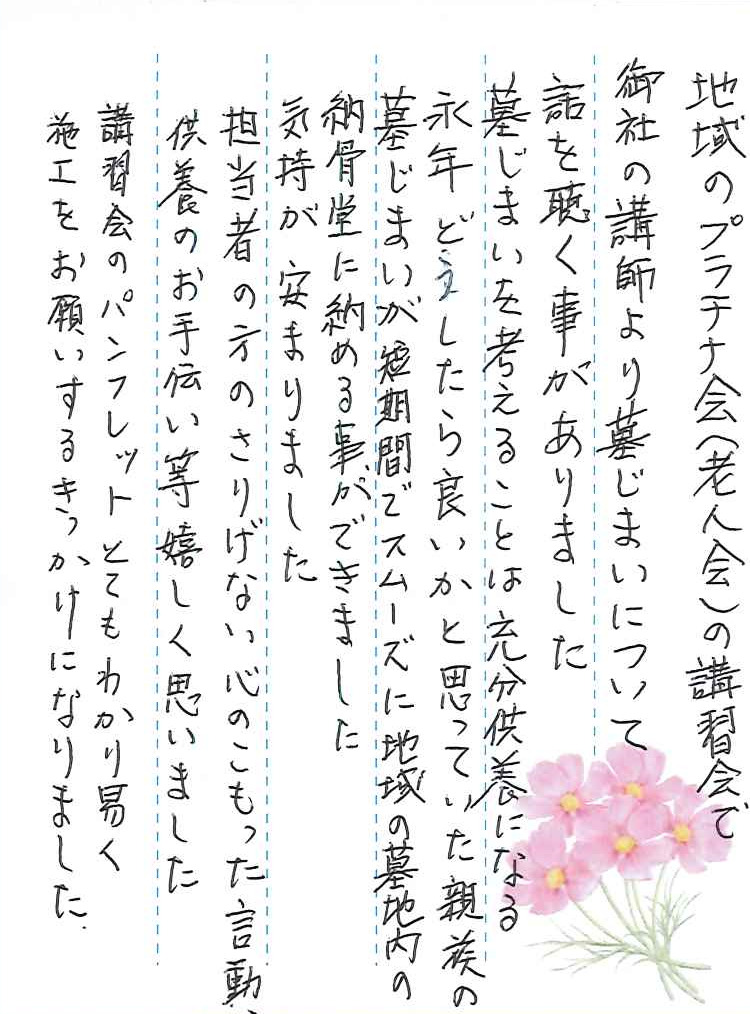 地域のプラチナ会(老人会)の講習会で
御社の講師より墓じまいについて
話を聴く事がありました
墓じまいを考えることは充分供養になる
永年どうしたら良いかと思っていた親族の
墓じまいが短期間でスムーズに地域の墓地内の
納骨堂に納める事ができました
気持が安まりました
担当者の方のさりげない心のこもった言動、
供養のお手伝い等嬉しく思いました
講習会のパンフレットとてもわかり易く
施工をお願いするきっかけになりました.